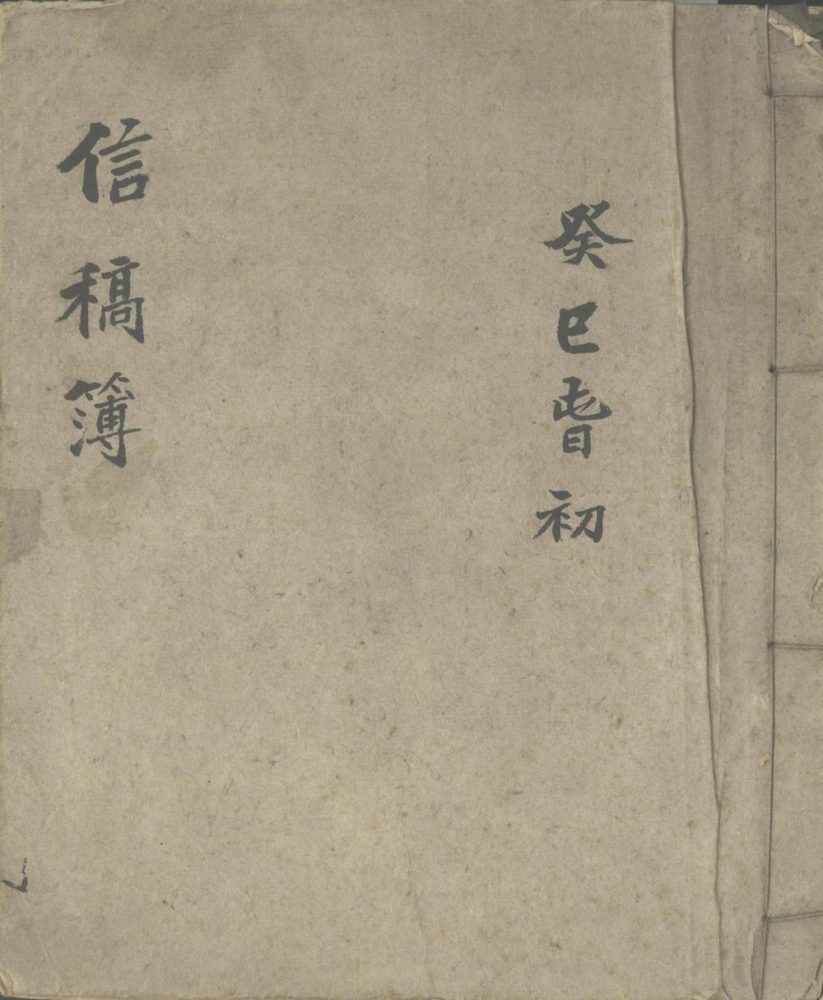 癸巳旾初
信稿簿